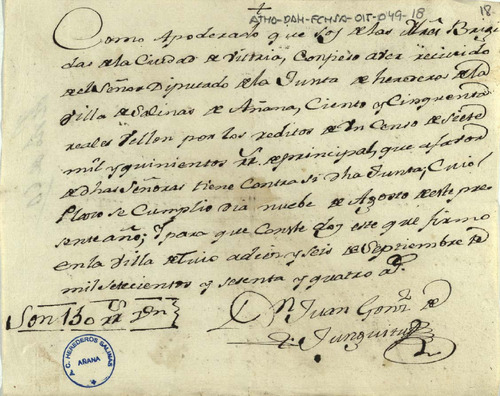 ATHA-DAH-FCHSA-015-049-18
18
Como Apoderado que soy de las Mras Brigi
das de la Ciudad de Vitoria, Confieso aver recivido
del Señor Diputado de la Junta de herederos de la
Villa de Salinas de Añana, Ciento y Cinquenta
reales vellon por los reditos de Un Censo de Siete
mil y quinientos Rs. de principal, que a favor
de dhas Señoras tiene contra si dha Junta, Cuio
Plazo se Cumplio dia nuebe de Agosto de este pre
sente año; Y para que Conste doy este que firmo
en la Villa de Tuio a diez y seis de Septiembre de
mil setecientos y sesenta y quatro as.
Son 150 Rs Vn
Dn Juan Gonz. de
Junguitu
A.C. HEREDEROS SALINAS
AÑANA